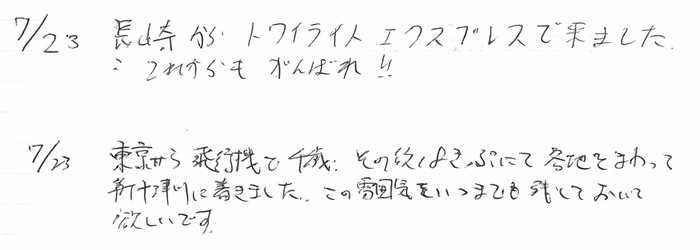 7/23 長崎から トワイライトエクスプレスで来ました.
これからも がんばれ!!
7/23 東京から飛行機で千歳. その後18きっぷにて各地をまわって
新十津川に着きました. この雰囲気をいつまでも残しておいて
欲しいです.